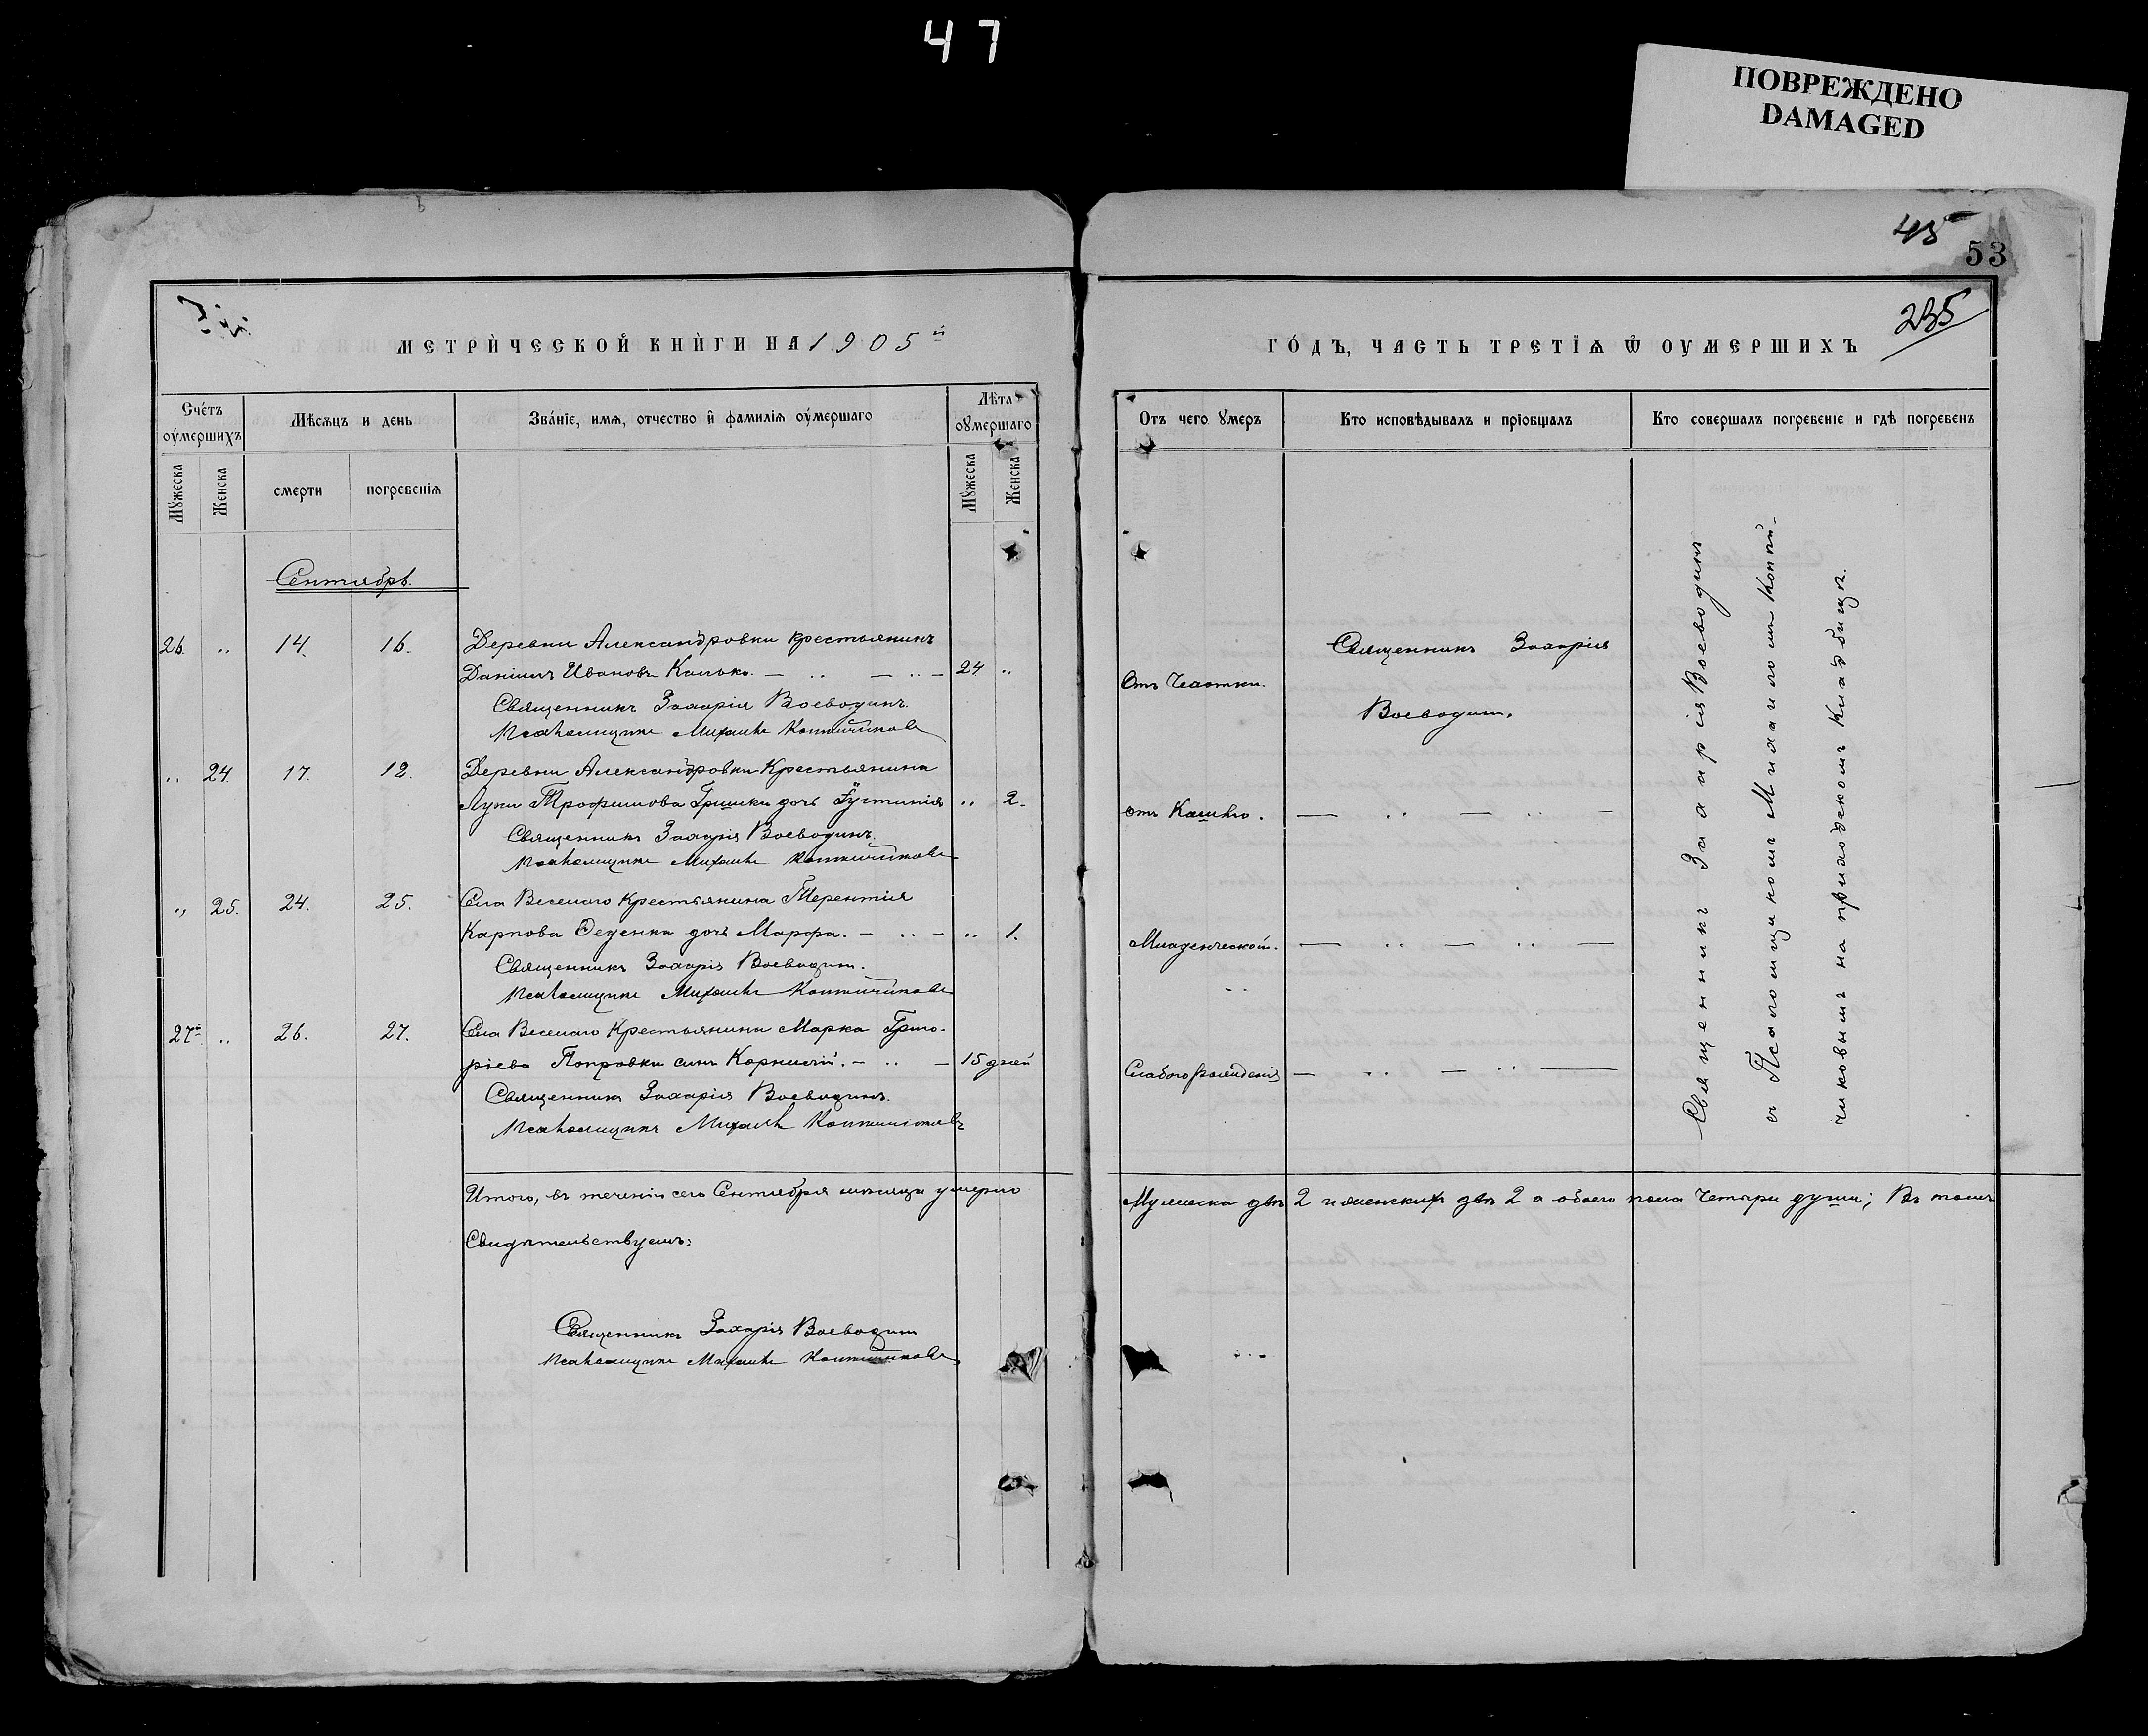 47
ПОВРЕЖДЕНО
DAMAGED
45
53
235
МЕТРИЧЕСКОЙ КНИГИ НА 1905й
ГОДЪ, ЧАСТЬ ТРЕТІѦ Ѿ ОУМЕРШИХЪ
Счетъ оумершихъ
Мѣсяцъ и день
Званіе, имя, отчество и фамилія оумершаго
Лѣта оумершаго
Отъ чего умеръ
Кто исповѣдывалъ и пріобщалъ
Кто совершалъ погребеніе и гдѣ погребенъ
Мужеска
Женска
смерти
погребенія
Мужеска
Женска
Сентябрь.
26. „ 14. 16. Деревни Александровки крестьянинъ
Даніилъ Ивановъ Калько. — „ — „ — 24. „
Отъ Чахотки.
Священникъ Захарія
Воеводинъ.
Священникъ Захарія Воеводинъ.
Псаломщикъ Михаилъ
„ 24. 17. 18. Деревни Александровки Крестьянина
Луки Трофимова Гришки дочь Іустинія „ 2.
отъ Кашлю. — „ — „ —
Священникъ Захарія Воеводинъ.
Псаломщикъ Михаилъ
„ 25. 24. 25. Села Веселаго Крестьянина Терентія
Карпова дочь Марфа. — „ — „ 1.
Младенческой. — „ — „ —
Священникъ Захарія Воеводинъ.
Псаломщикъ Михаилъ
27й „ 26. 27. Села Веселаго Крестьянина Марка Григо-
ріева Поправки сынъ Корнилій. — „ — 15 дней
Слабого рожденія — „ — „ —
Священникъ Захарія Воеводинъ.
Псаломщикъ Михаилъ
Священникъ Захарія Воеводинъ
съ Псаломщикомъ Михаиломъ
чиковымъ на приходскомъ кладбищѣ.
Итого, въ теченіи сего Сентября мѣсяца умерло
Мужеска двѣ 2 и женскихъ двѣ 2 а обоего пола четыри души; Въ томъ
Свидѣтельствуемъ:
Священникъ Захарія Воеводинъ
Псаломщикъ Михаилъ